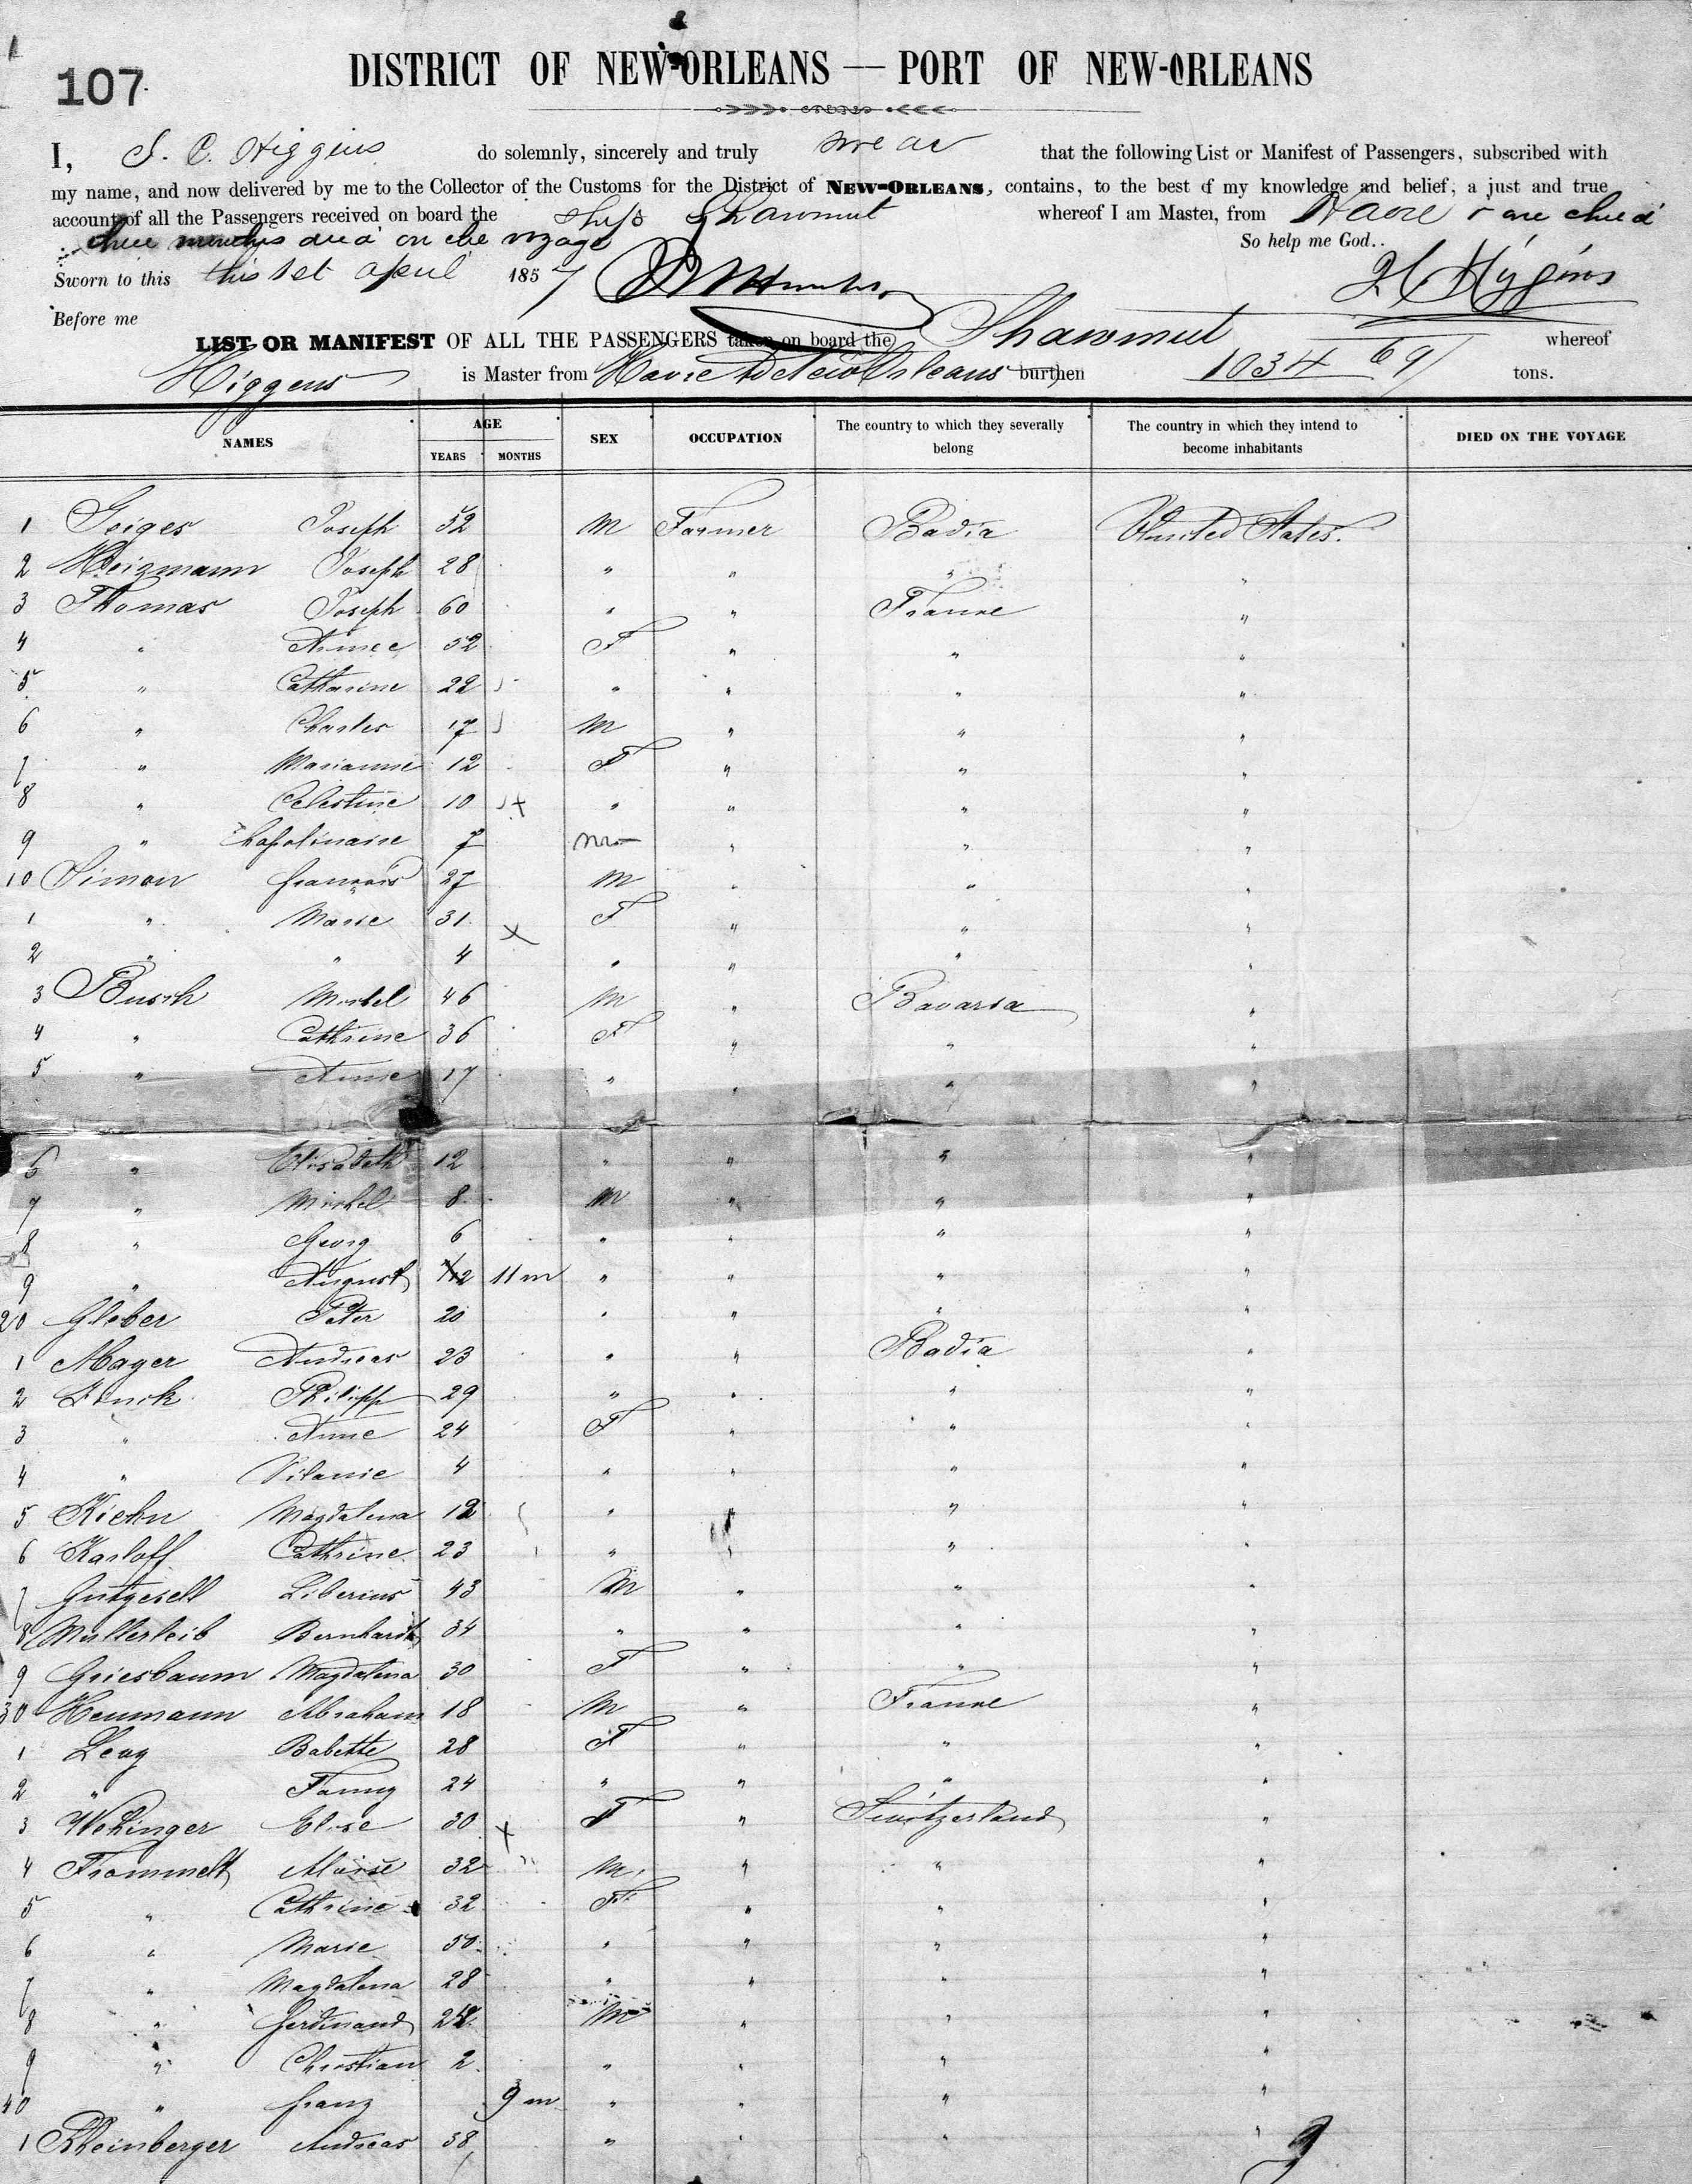 107
DISTRICT OF NEW-ORLEANS — PORT OF NEW-ORLEANS
I, J. C. Higgins do solemnly, sincerely and truly swear that the following List or Manifest of Passengers, subscribed with
my name, and now delivered by me to the Collector of the Customs for the District of NEW-ORLEANS, contains, to the best of my knowledge and belief, a just and true
account of all the Passengers received on board the Ship Shawmut whereof I am Master, from Havre
three months died on the voyage So help me God..
Sworn to this this 1st april 1857 Higgins
Before me
LIST OR MANIFEST OF ALL THE PASSENGERS taken on board the Shawmut whereof
Higgens is Master from Havre to New Orleans burthen 1034 69/ tons.
NAMES AGE YEARS MONTHS SEX OCCUPATION The country to which they severally belong The country in which they intend to become inhabitants DIED ON THE VOYAGE
1 Geiges Joseph 52 M Farmer Badia United States.
2 Heizmann Joseph 28 " " " "
3 Thomas Joseph 60 " " France "
4 " Aimee 52 F " " "
5 " Catharine 22 " " " "
6 " Charles 17 M " " "
7 " Marianne 12 F " " "
8 " Celestine 10 x " " " "
9 " 7 m " " "
10 Simon francois 27 M " " "
1 " Marie 31 x F " " "
2 " " 4 " " " "
3 Busch Michel 46 M " Bavaria "
4 " Cathrine 36 F " " "
5 " Anne 17 " " " "
6 " Elisabeth 12 " " " "
7 " Michel 8 M " " "
8 " Georg 6 " " " "
9 " August 11 m " " " "
20 Gleber Peter 20 " " " "
1 Mayer Andreas 23 " " Badia "
2 Philipp 29 " " " "
3 " Anne 24 F " " "
4 " 4 " " " "
5 Kiehn Magdalena 12 " " " "
6 Karloff Cathrine 23 " " " "
7 Gutgesell Liberius 43 M " " "
8 Mullerleib Bernhard 34 " " " "
9 Griesbaum Magdalena 30 F " " "
30 Heumann Abraham 18 M " France "
1 Levy Babette 28 F " " "
2 " Fanny 24 " " " "
3 Wehinger Elise 30 x F " Switzerland "
4 Frommelt Moise 32 M " " "
5 " Cathrine 32 F " " "
6 " Marie 50 " " " "
7 " Magdalena 28 " " " "
8 " ferdinand M " " "
9 " Christian 2 " " " "
40 " franz 9 m " " " "
1 Rheinberger Andreas 38 " " " "